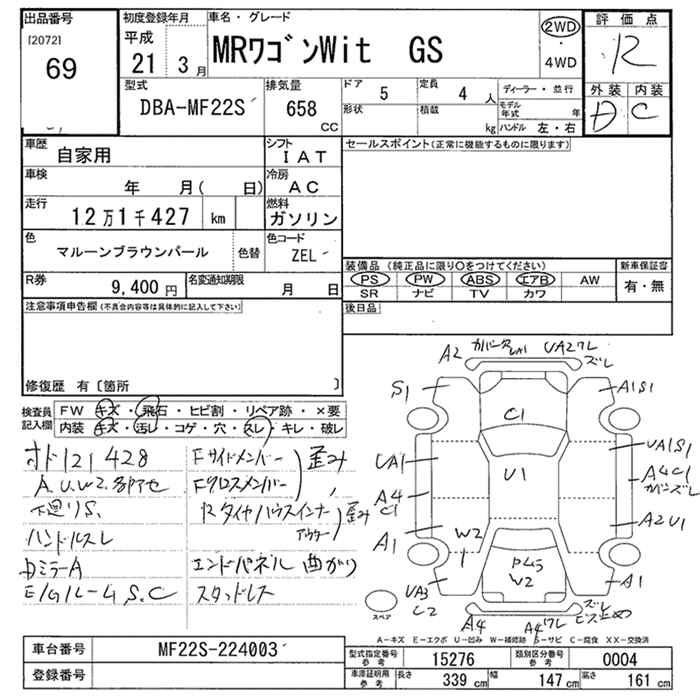 出品番号
[2072]
69
初度登録年月
平成
21 3月
車名・グレード
MRワゴンWit GS
2WD
・
4WD
評価点
R
外装 内装
D C
型式
DBA-MF22S
排気量
658
CC
ドア 5
定員 4 人
形状
積載 kg
ディーラー・並行
モデル年式 年
ハンドル 左・右
車歴
自家用
シフト
IAT
セールスポイント(正常に機能するものに限ります)
車検
年 月( 日)
冷房
AC
走行
12万1千427 km
燃料
ガソリン
色
マルーンブラウンパール
色替
色コード
ZEL
R券
9,400 円
名変通知期限
月 日
装備品 (純正品に限り○をつけてください)
PS PW ABS エアB AW
SR ナビ TV カワ
新車保証書
有・無
注意事項申告欄(不具合内容等は具体的に記入して下さい)
後日品
修復歴 有〔箇所 〕
検査員
記入欄
FW キズ・飛石・ヒビ割・リペア跡・×要
内装 キズ・汚レ・コゲ・穴・スレ・キレ・破レ
オド121428
A.U.W2.多部アセ
下廻りS.
ハンドルスレ
DミラーA
E/Gルーム S.C
Fサイドメンバー
Fクロスメンバー
歪み
Rタイヤハウスインナー
アウター
歪み
エンドパネル 曲がり
スタッドレス
A2
UA2ワレ
ズレ
S1
A1S1
C1
UA1
U1
UA1S1
A4
C1
A4C1
カバンズレ
A1
W2
1
A2U1
P45
W2
UA3
C2
A1
スペア
A4
A4ワレ
ズレ
ビス止め
A－キズ E－エクボ U－凹み W－補修跡 S－サビ C－腐食 XX－交換済
車台番号
MF22S-224003
登録番号
型式指定番号
参考
15276
類別区分番号
参考
0004
車庫証明用
参考
長さ 339 cm
幅 147 cm
高さ 161 cm